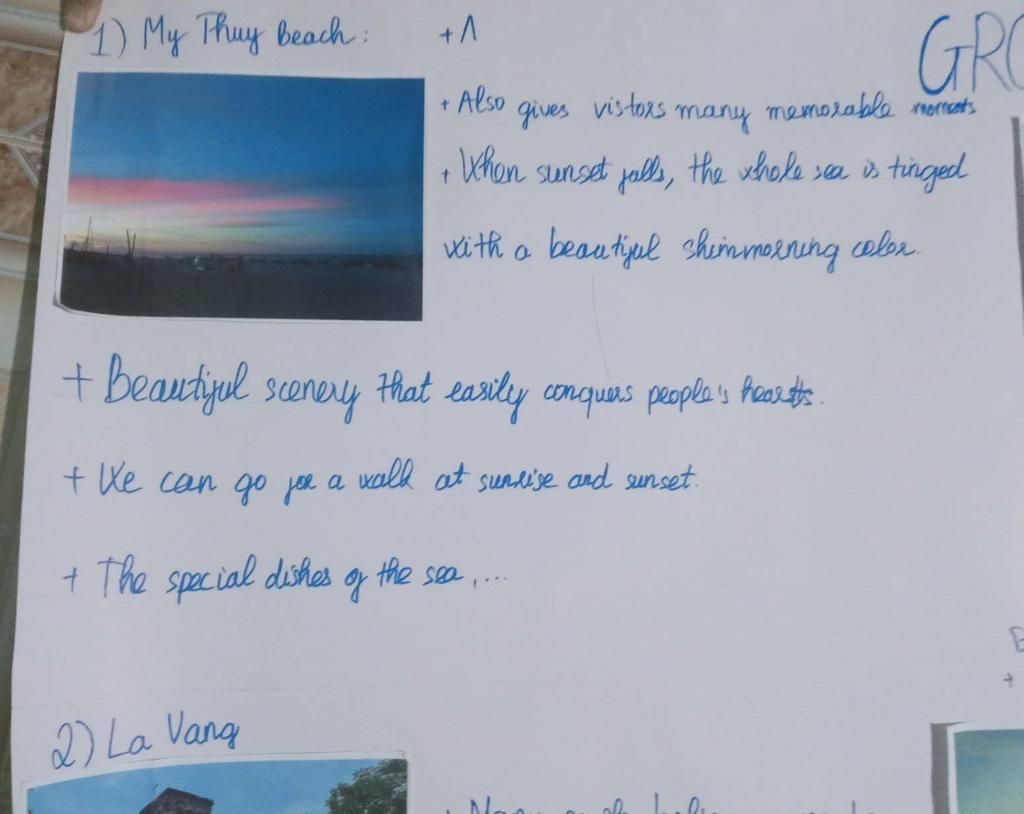 1) My Thuy Beach:
+ Λ
GRO
+ Also gives vistors many memorable moments
+ When sunset falls, the whole sea is tinged
with a beautiful shimmorning color.
+ Beautiful scenery that easily conquers people's hearts.
+ We can go for a walk at sunrise and sunset.
+ The special dishes of the sea,...
2) La Vang